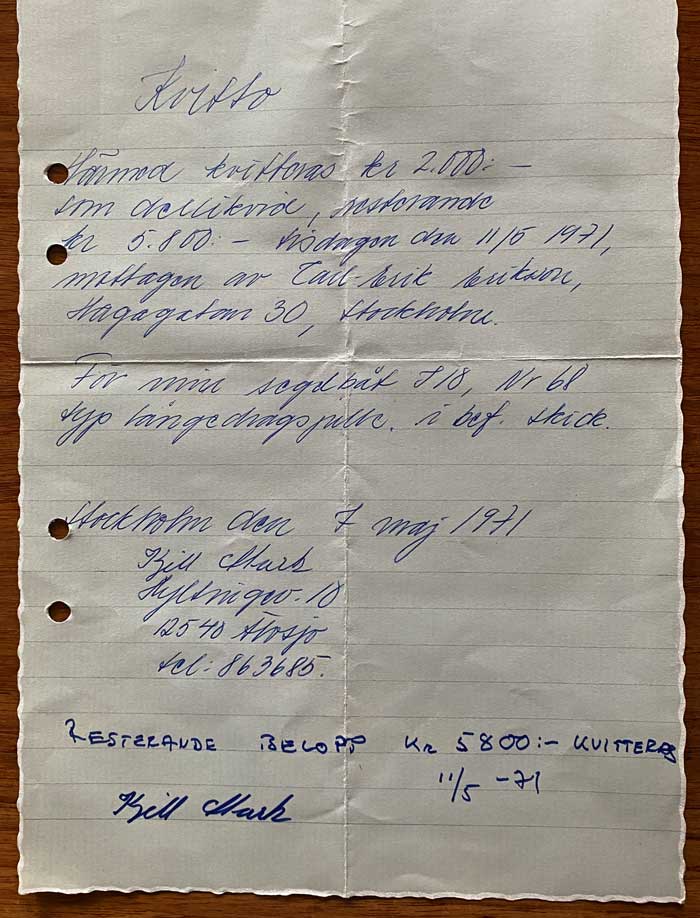 Kvitto
Härmed kvitteras kr 2.000:-
som dellikvid, resterande
kr 5.800:- tisdagen den 11/5 1971,
mottagen av Carl Erik Erikson,
Hagagatan 30, Stockholm.
För min segelbåt J18, Nr 68
typ Långedragsjulle. i bef. skick.
Stockholm den 7 maj 1971
Kjell Stark
10
12540 Älvsjö
tel: 863685.
RESTERANDE BELOPP Kr 5800:- KVITTERAS
11/5 -71
Kjell Stark